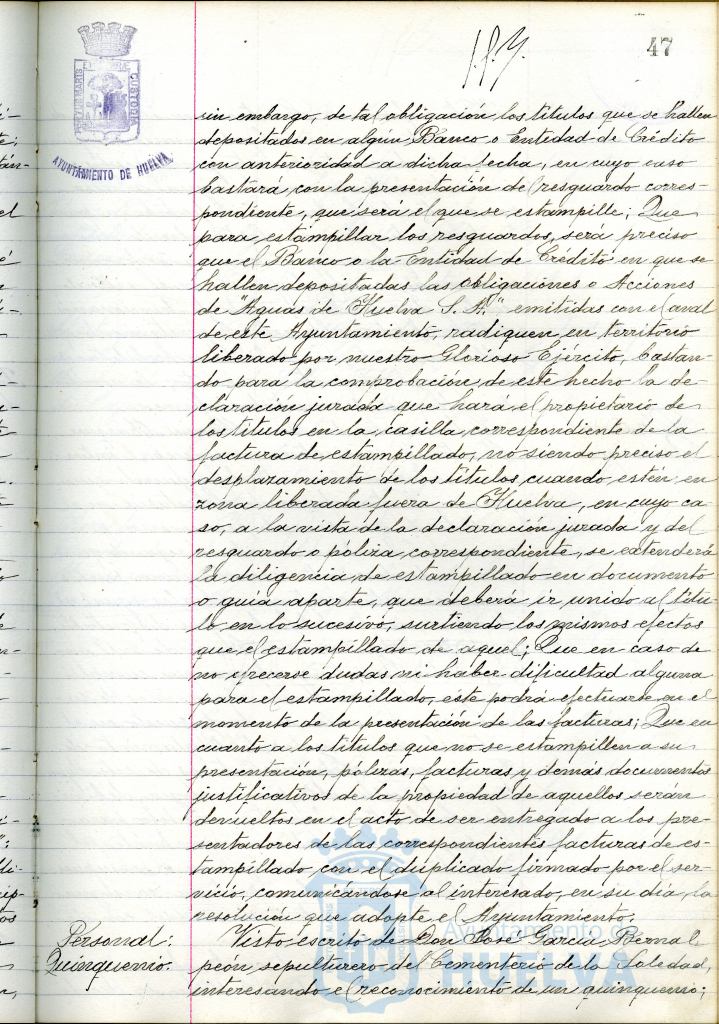 47
PORTUS MARIS ET TERRAE CUSTODIA
AYUNTAMIENTO DE HUELVA
sin embargo, de tal obligación los títulos que se hallen
depositados en algún Banco o Entidad de Crédito
con anterioridad a dicha fecha, en cuyo caso
bastara con la presentación del resguardo corres-
pondiente, que será el que se estampille; Que
para estampillar los resguardos, será preciso
que el Banco o la Entidad de Crédito en que se
hallen depositadas las obligaciones o Acciones
de "Aguas de Huelva S. A." emitidas con el aval
de este Ayuntamiento, radiquen en territorio
liberado por nuestro Glorioso Ejército, bastan-
do, para la comprobación de este hecho la de-
claración jurada que hará el propietario de
los títulos en la casilla correspondiente de la
factura de estampillado, no siendo preciso el
desplazamiento de los títulos cuando estén en
zona liberada fuera de Huelva, en cuyo ca-
so, a la vista de la declaración jurada y del
resguardo o póliza correspondiente, se extenderá
la diligencia de estampillado en documento
o guía aparte, que deberá ir unido al títu-
lo en lo sucesivo, surtiendo los mismos efectos
que el estampillado de aquel; Que en caso de
no ofrecerse dudas ni haber dificultad alguna
para el estampillado, este podrá efectuarse en el
momento de la presentación de las facturas; Que en
cuanto a los títulos que no se estampillen a su
presentación, pólizas, facturas y demás documentos
justificativos de la propiedad de aquellos serán
devueltos en el acto de ser entregado a los pre-
sentadores de las correspondientes facturas de es-
tampillado con el duplicado firmado por el ser-
vicio, comunicándose al interesado, en su día, la
resolución que adopte el Ayuntamiento.
Personal:
Quinquenio.
Visto escrito de Don José García Bernal
peón sepulturero del Cementerio de la Soledad,
interesando el reconocimiento de un quinquenio;
Ayuntamiento de
HUELVA